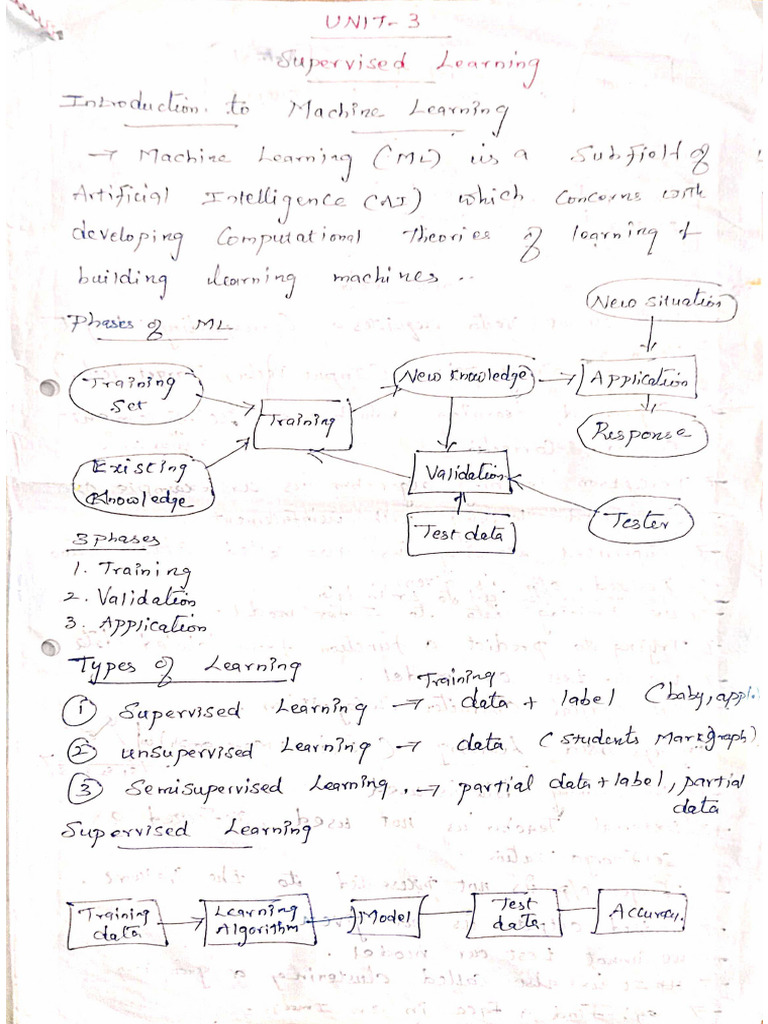 UNIT-3
Supervised Learning
Introduction to Machine Learning
→ Machine Learning (ML) is a Subfield of
Artificial Intelligence (AI) which Concerns with
developing Computational Theories of learning &
building learning machines..
New situation
Phases of ML
Training Set
New Knowledge
Application
Training
Response
Existing Knowledge
Validation
Test data
Tester
3 phases
1. Training
2. Validation
3. Application
Types of Learning
Training
① Supervised Learning → data + label (baby, appl.
② unsupervised Learning → data (students Mark graph)
③ Semisupervised Learning. → partial data + label, partial
data
Supervised Learning
Training data
Learning Algorithm
Model
Test data.
Accuracy.